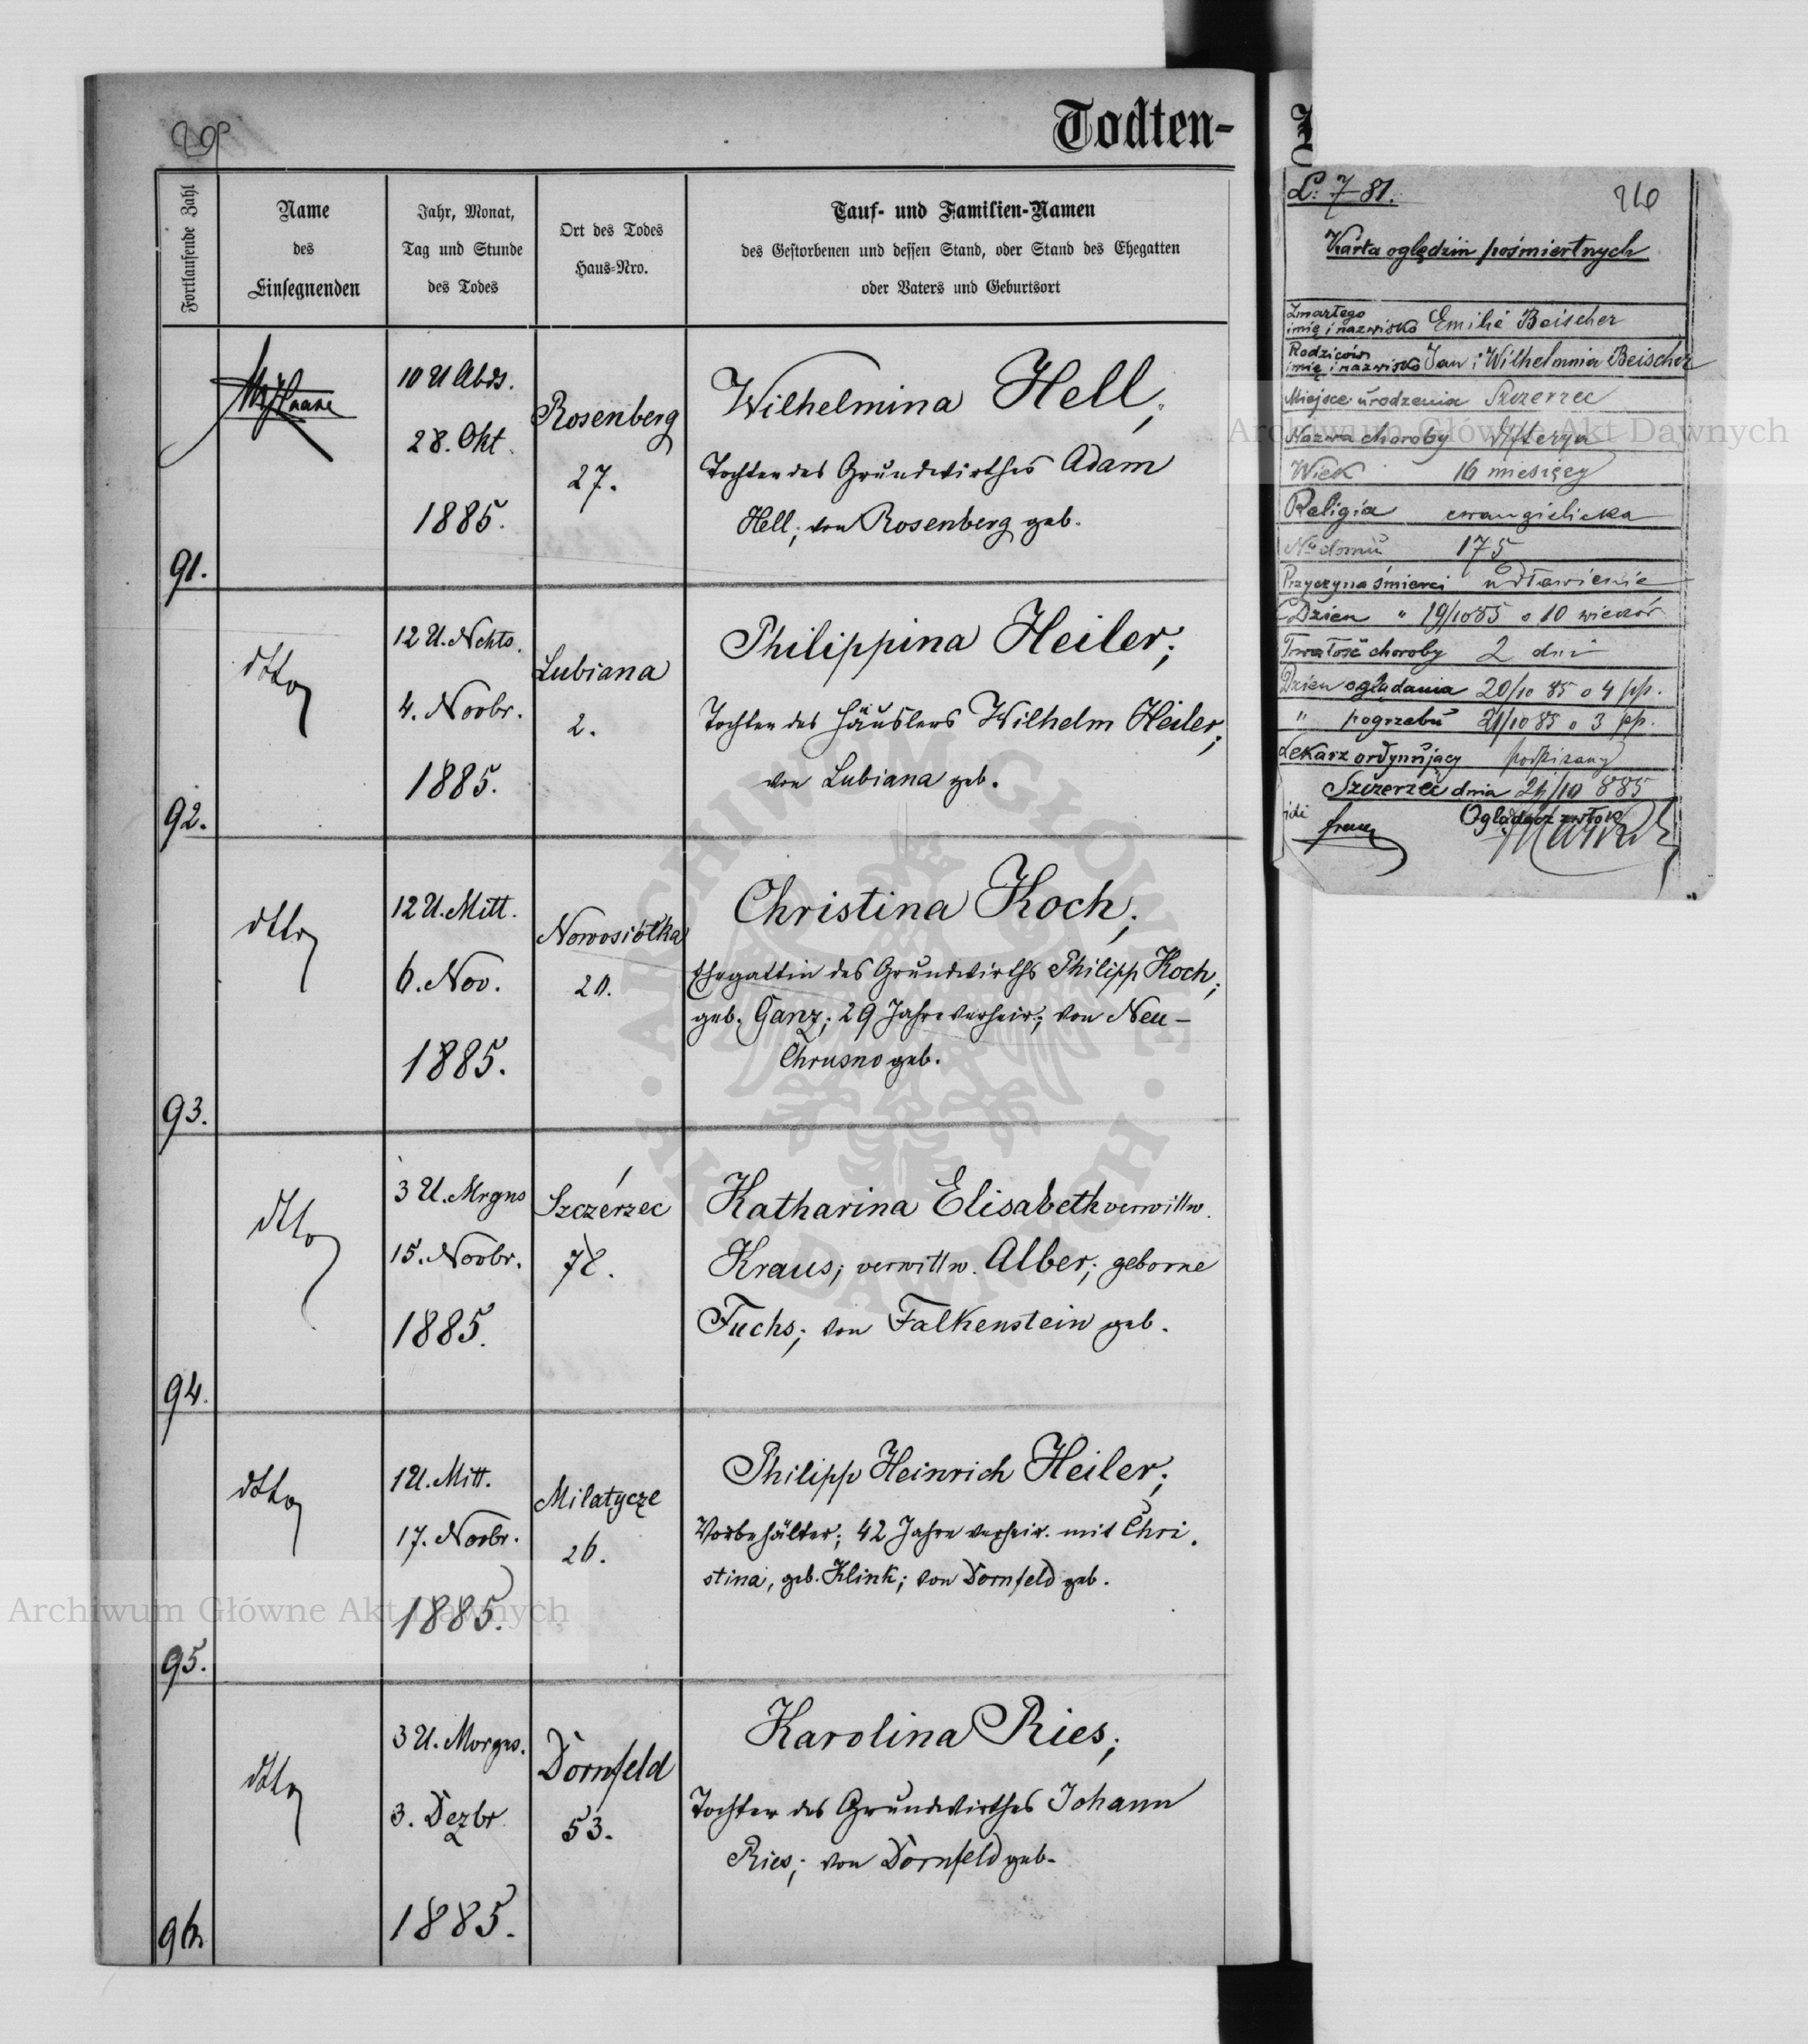 Todten-
Fortlaufende Zahl
Name
des
Einsegnenden
Jahr, Monat,
Tag und Stunde
des Todes
Ort des Todes
Haus=Nro.
Tauf- und Familien-Namen
des Gestorbenen und dessen Stand, oder Stand des Ehegatten
oder Vaters und Geburtsort
91.
10 U Abds.
28. Okt.
1885.
Rosenberg
27.
Wilhelmina Hell;
Tochter des Grundwirthes Adam
Hell; von Rosenberg geb.
92.
dtto
12 U. Nchts.
4. Novbr.
1885.
Lubiana
2.
Philippina Heiler;
Tochter des Häuslers Wilhelm Heiler;
von Lubiana geb.
93.
dtto
12 U. Mitt.
6. Nov.
1885.
Nowosiółka
20.
Christina Koch;
Ehegattin des Grundwirths Philipp Koch;
geb. Ganz; 29 Jahre verheir.; von Neu-
Chrusno geb.
94.
dtto
3 U. Mrgns
15. Novbr.
1885.
Szczérzec
78.
Katharina Elisabeth verwittw.
Kraus; verwittw. Alber; geborne
Fuchs; von Falkenstein geb.
95.
dtto
1 U. Mitt.
17. Novbr.
1885.
Milatycze
26.
Philipp Heinrich Heiler;
Vorbehälter; 42 Jahre verheir. mit Chri.
stina, geb. Klink; von Dornfeld geb.
96.
dtto
3 U. Morgns.
3. Dezbr
1885.
Dornfeld
53.
Karolina Ries;
Tochter des Grundwirthes Johann
Ries; von Dornfeld geb.
L: 7-81.
Karta oględzin pośmiertnych
Zmarłego
imię i nazwisko Emilie Beischer
Rodziców
imię i nazwisko Jan i Wilhelmnia Beischer
Miejsce urodzenia Szczerzec
Nazwa choroby Dyfterya
Wiek 16 miesięcy
Religia ewangielicka
No domu 175
Przyczyna śmierci udławienie
Dzien " 19/10 85 o 10 wieczór
Trwałość choroby 2 dni
Dzien oglądania 20/10 85 o 4 pp.
" pogrzebu 21/10 85 o 3 pp.
Lekarz ordynujący podpisany
Szczerzec dnia 21/10 885
Oglądacz zwłok
Archiwum Główne Akt Dawnych
Archiwum Główne Akt Dawnych
ARCHIWUM GŁÓWNE
AKT DAWNYCH